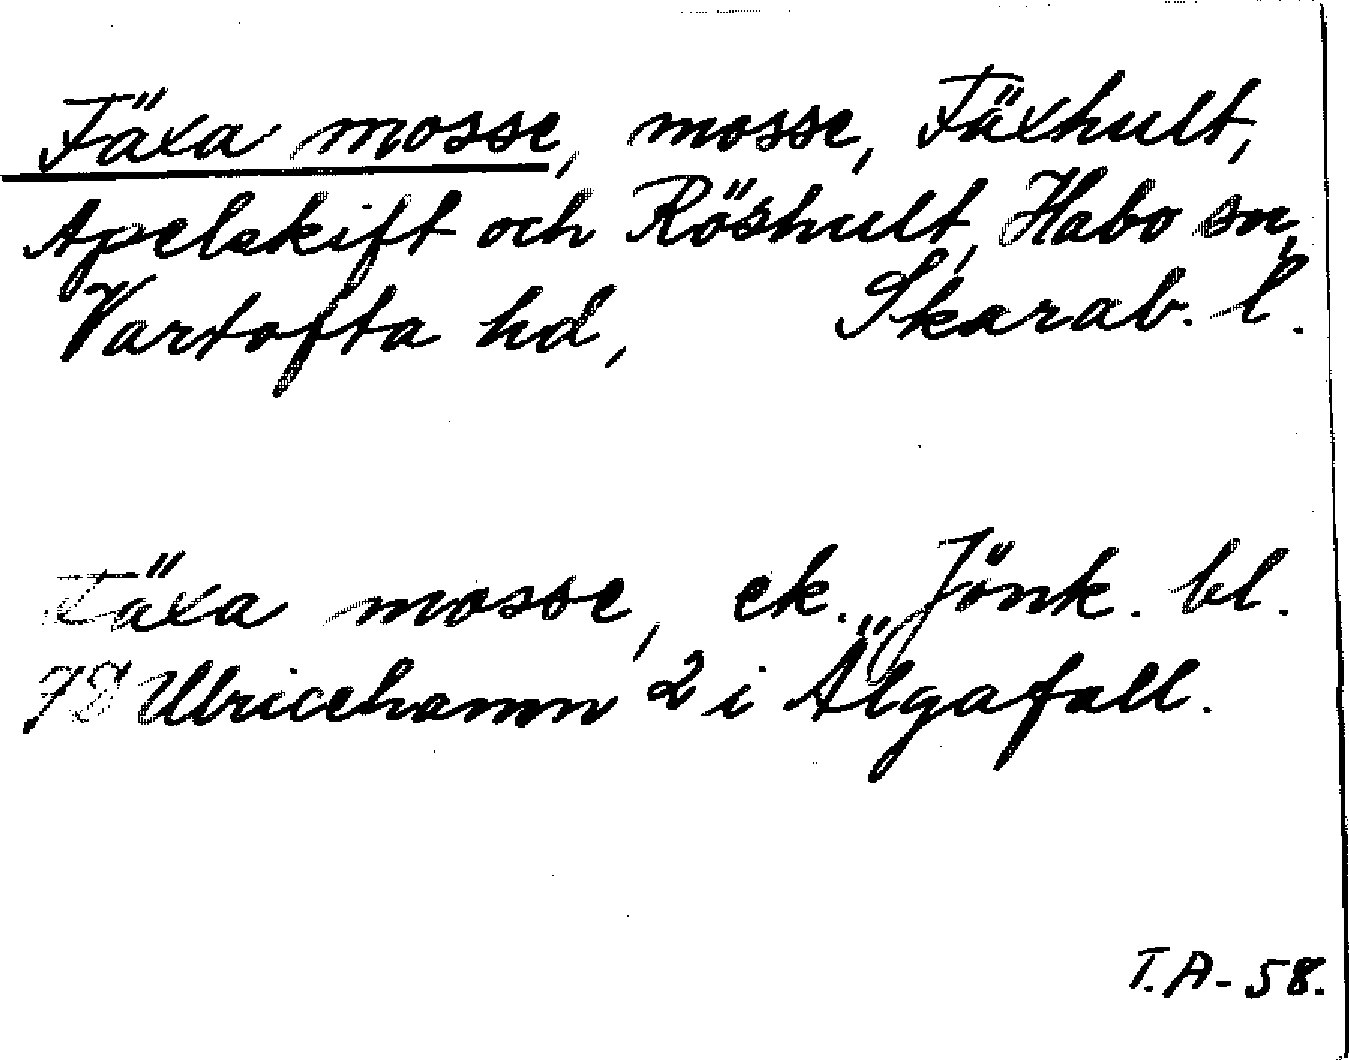 Fäxa mosse, mosse, Fäxhult,
Apelskift och Röshult, Habo sn,
Vartofta hd, Skarab. l.
Fäxa mosse, ek. Jönk. bl.
7D Ulricehamn 2 i Älgafall.
T.A-58.